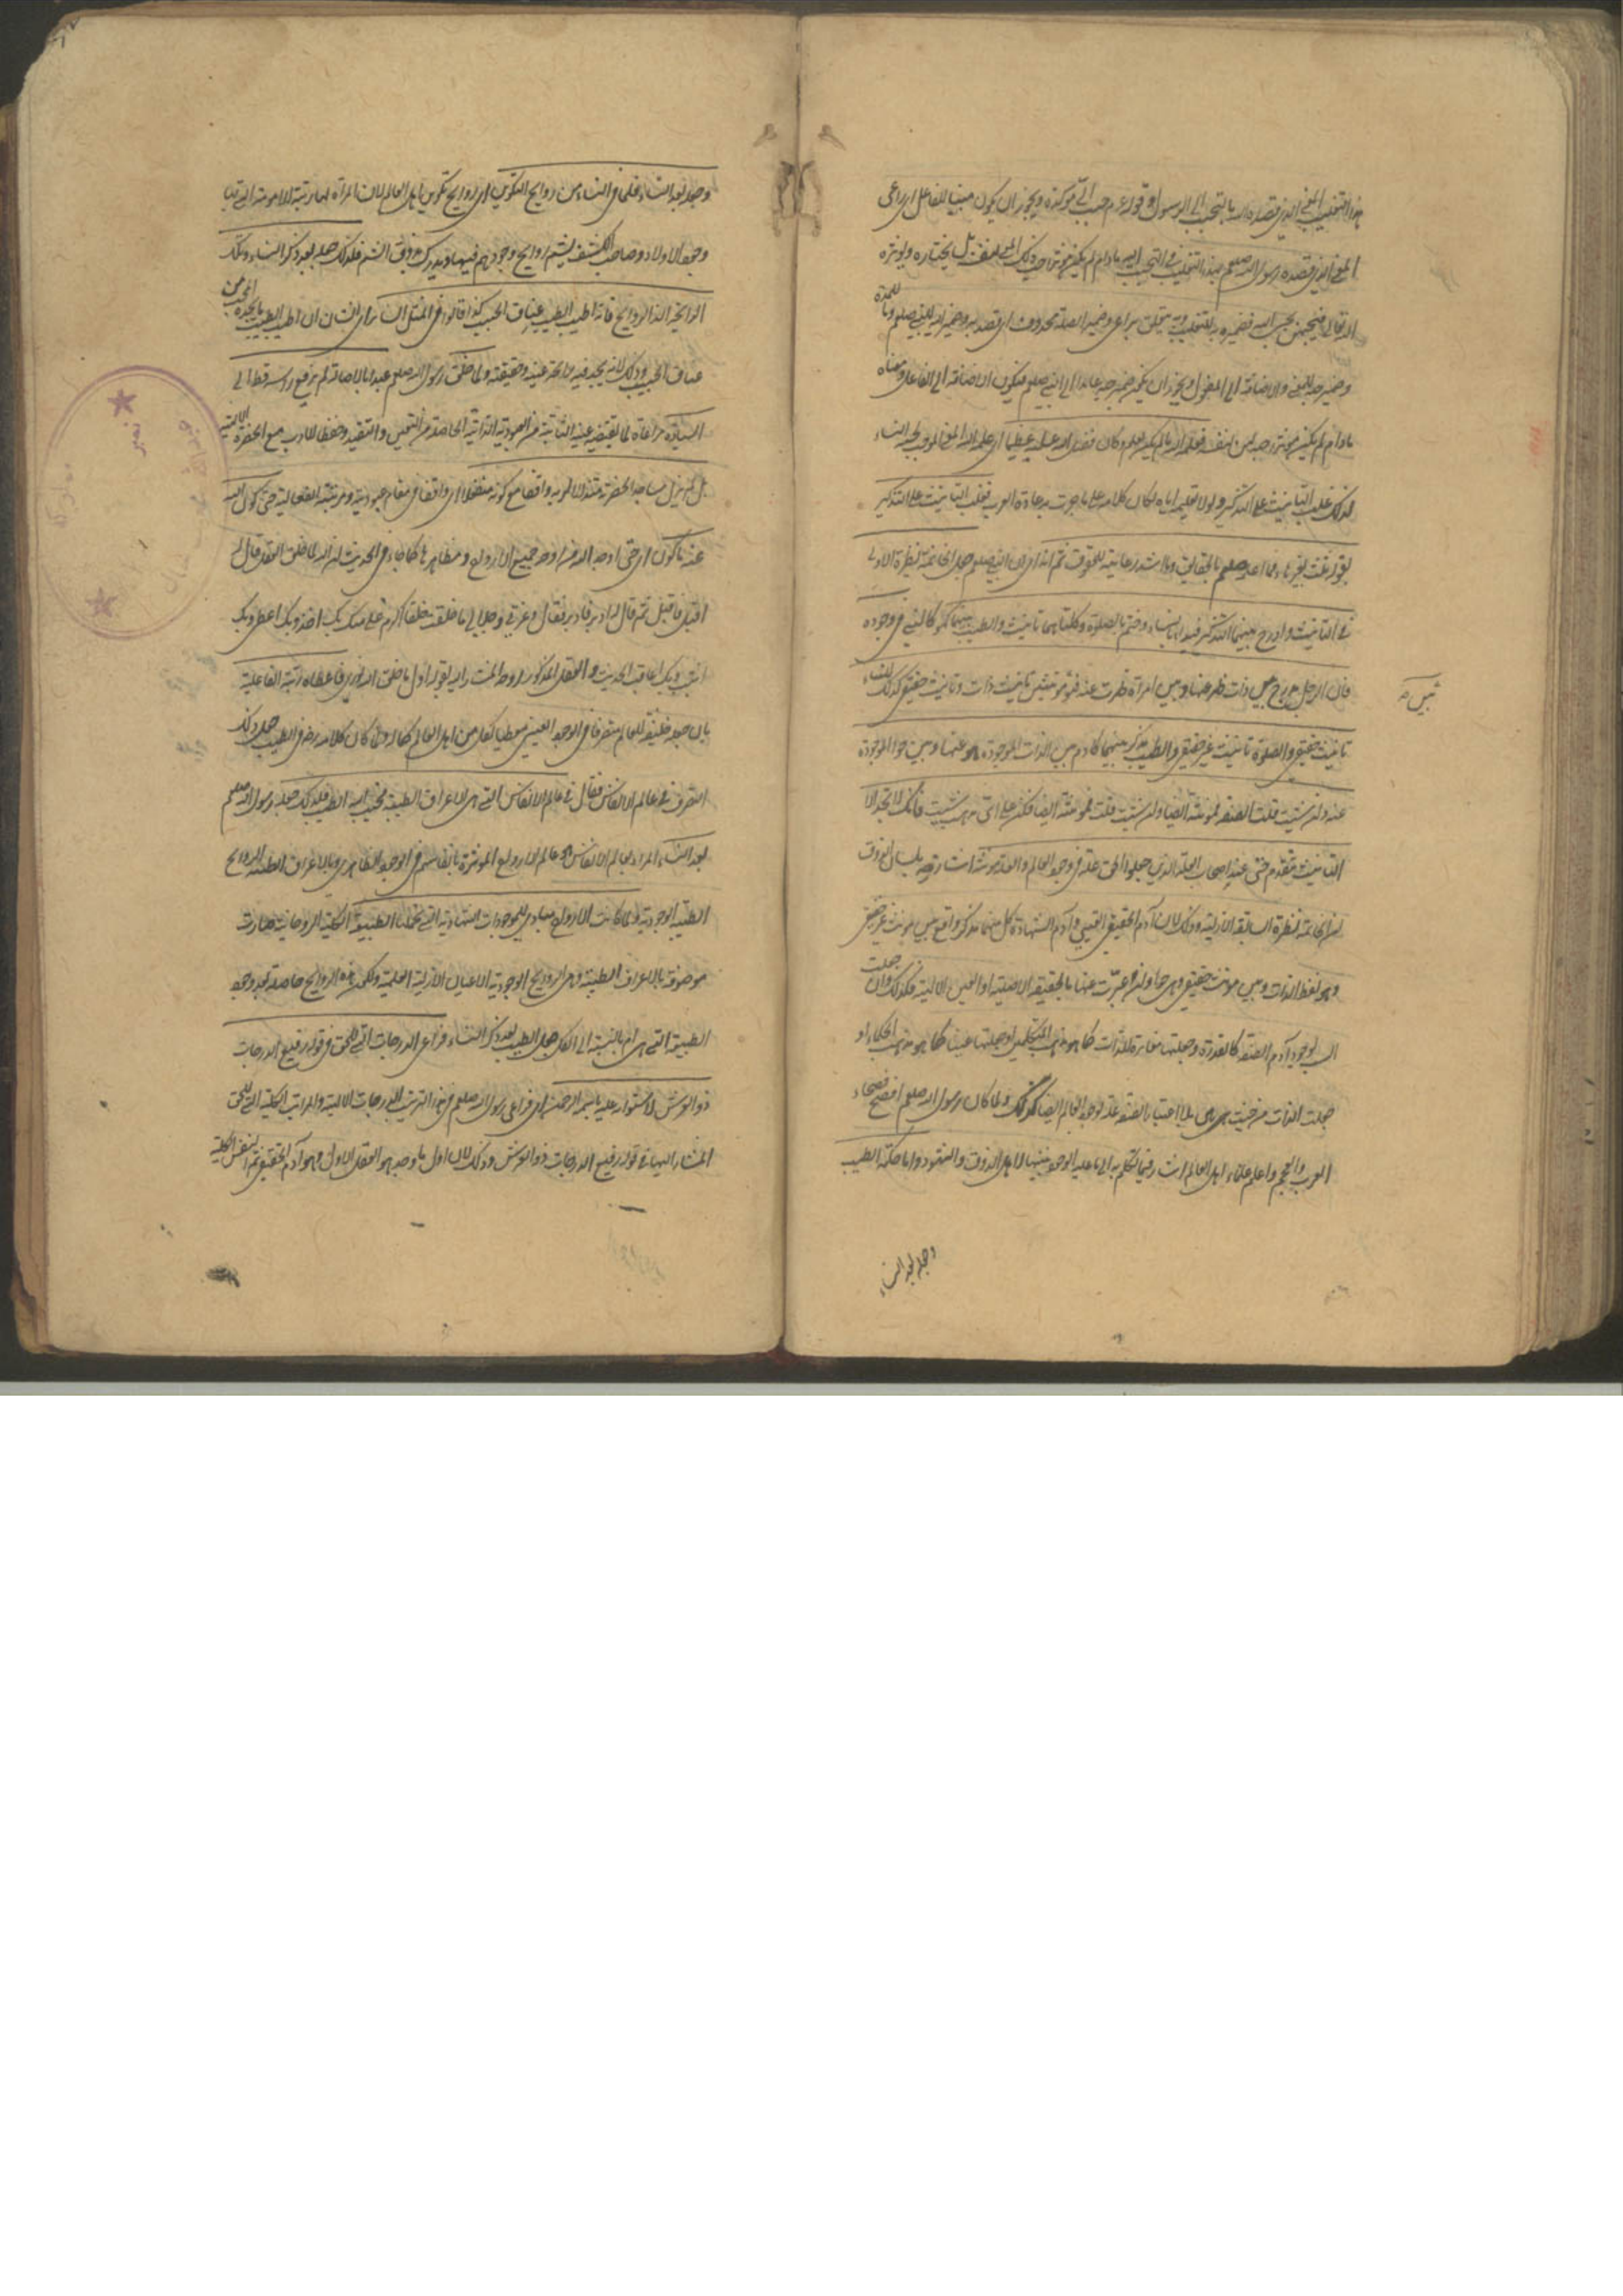 هذا التغليب المعنى الذي قصد الله به بالتحبب الى الرسول في قوله عم حبب الي مؤكدة ويجوز ان يكون مبنيا للفاعل اي راعى
المعنى الذي قصده رسول الله صلعم بهذا التغليب في التحبب اليه مادام لم يكن يؤثر حب ذلك المعنى لنفسه بل يختاره ويؤثره
الله تعالى فيحبه من يحبب اليه فضميره به للتغليب وبه متعلق براعى وضمير الصلة محذوف اي قصد به وضمير اليه للنبي صلعم وما للمدة
وضمير حبه للمعنى والاضافة الى المفعول ويجوز ان يكون ضمير حبه عائدا الى النبي صلعم فيكون الاضافة الى الفاعل ومعناه
مادام لم يكن يؤثر حبه لنفسه فعلمه الله مالم يكن يعلم وكان فضل الله عليه عظيما اي علمه الله المعنى الموجب لحبه النساء
لذلك غلب التأنيث على التذكير ولولا تعليمه اياه لكان كلامه على ما جرت به عادة العرب فغلب التأنيث على التذكير
بقوله ثلث بغير هاء فما اعلمه صلعم بالحقائق وما اشد رعايته للحقوق ثم انه اي ان النبي صلعم جعل الخاتمة نظيرة الاولى
في التأنيث وادرج بينهما التذكير فبدأ بالنساء وختم بالصلوة وكلتاهما تأنيث والطيب بينهما كهو كالنبي في وجوده
فان الرجل مدرج بين ذات ظهر عنها وبين امرأة ظهرت عنه فهو بين مؤنثين تأنيث ذات وتأنيث حقيقي كذلك النساء
تأنيث حقيقي والصلوة تأنيث غير حقيقي والطيب مذكر بينهما كآدم بين الذات الموجودة هو عنها وبين حوا الموجودة
عنه وان شئت قلت الصفة فمؤنثة ايضا وان شئت قلت فمؤنثة ايضا فكن على اي مذهب شئت فانك لا تجد الا
التأنيث يتقدم حتى عند اصحاب العلة الذين جعلوا الحق علة في وجود العالم والعلة مؤنثة اشارة بلسان الذوق
ان الخاتمة نظيرة السابقة الازلية وذلك لان آدم الحقيقي الغيبي وآدم الشهادة كل منهما مذكر واقع بين مؤنث غير حقيقي
وهو لفظ الذات وبين مؤنث حقيقي وهي حوا وان عبرت عنها بالحقيقة الاصلية او العين الالهية فكذلك وان جعلت
السبب لوجود آدم الصفة كالقدرة وجعلتها مغايرة للذات كما هو مذهب المتكلمين او جعلتها عينا كما هو مذهب الحكماء او
جعلت الذات من حيث هي هي بلا اعتبار الصفة علة لوجود العالم ايضا كذلك ولما كان رسول الله صلعم افصح فصحاء
العرب والعجم واعلم علماء اهل العالم اشار فيما تكلم به الى ما عليه الوجود تنبيها لاهل الذوق والشهود واما حكمة الطيب
وجعله بعد النساء
وجعله بعد النساء فلما في النساء من روايح التكوين اي روايح تكوين اهل العالم لان المرأة لها رتبة الامومة التي بها
وجود الاولاد وصاحب الكشف يشم روايح وجودهم فيها ويدرك بذوق الشم فلذلك جعله بعد ذكر النساء وتلك
الرايحة الذ الروايح فانه اطيب الطيب عناق الحبيب كذا قالوا في المثل السائر اي الشان ان اطيب الطيب ما يجده المحب من
عناق الحبيب وذلك لانه يجد فيه رايحة عينه وحقيقته ولما خلق رسول الله صلعم عبدا بالاصالة لم يرفع رأسه قط الى
السيادة مراعاة لما يقتضيه عينه الثابتة من العبودية الذاتية الحاصلة من التعين والتقيد وحفظا للادب مع الحضرة الالهية
بل لم يزل ساجدا لحضرته متذللا لربه واقفا مع كونه منفعلا اي واقفا في مقام عبوديته ومرتبته انفعاليته حتى كون الله
عنه ما كون اي حتى اوجد الله منه اوجد جميع الارواح ومظاهرها كما جاء في الحديث ان الله لما خلق العقل قال له
اقبل فاقبل ثم قال له ادبر فادبر فقال وعزتي وجلالي ما خلقت خلقا اكرم علي منك بك اخذ وبك اعطي وبك
اثيب وبك اعاقب الحديث والعقل المذكور هو روحه المشار اليه بقوله اول ما خلق الله نوري فاعطاه رتبة الفاعلية
بان جعله خليفة للعالم متصرفا في الوجود العيني معطيا لكل من اهل العالم كماله ولما كان كلامه رض في الطيب جعل ذلك
التصرف في عالم الانفاس فقال في عالم الانفاس التي هي الاعراف الطيبة فحبب اليه الطيب فلذلك جعله رسول الله صلعم
بعد النساء المراد بعالم الانفاس هو عالم الارواح المؤثرة بانفاسهم في الوجود الظاهري وبالاعراف الطيبة الروايح
الطيبة الوجودية ولما كانت الارواح مبادي للموجودات الشهادية التي تحملها الطبيعة الكلية الروحانية صارت
موصوفة بالاعراف الطيبة وهي الروايح الوجودية الاعيان الازلية العلمية ولكون هذه الروايح حاصلة بعد وجود
الطبيعة التي هي ام بالنسبة الى الكل جعل الطيب بعد ذكر النساء فراعى الدرجات التي للحق في قوله رفيع الدرجات
ذو العرش لاستوائه عليه باسمه الرحمن اي فراعى رسول الله صلعم في هذا الترتيب الدرجات الالهية والمراتب الكلية التي للحق
المشار اليها في قوله رفيع الدرجات ذو العرش وذلك لان اول ما وجد هو العقل الاول وهو آدم الحقيقي ثم النفس الكلية